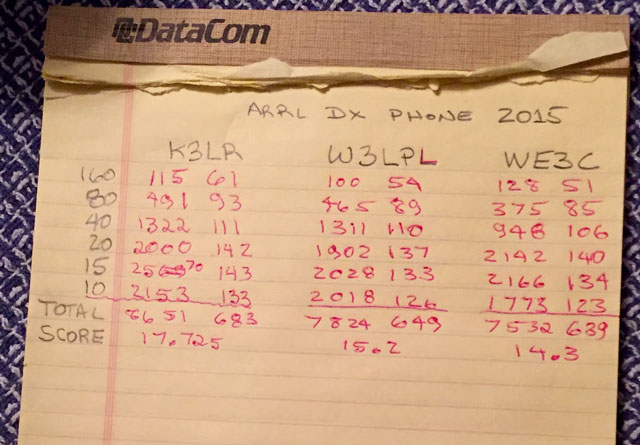 DataCom
ARRL DX PHONE 2015
K3LR W3LPL WE3C
160 115 61 100 54 128 51
80 491 93 465 89 375 85
40 1322 111 1311 110 948 106
20 2000 142 1902 137 2142 140
15 2570 143 2028 133 2166 134
10 2153 133 2018 126 1773 123
TOTAL 8651 683 7824 649 7532 639
SCORE 17.725 15.2 14.3